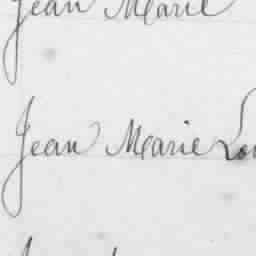 Jean Marie
Jean Marie Lou